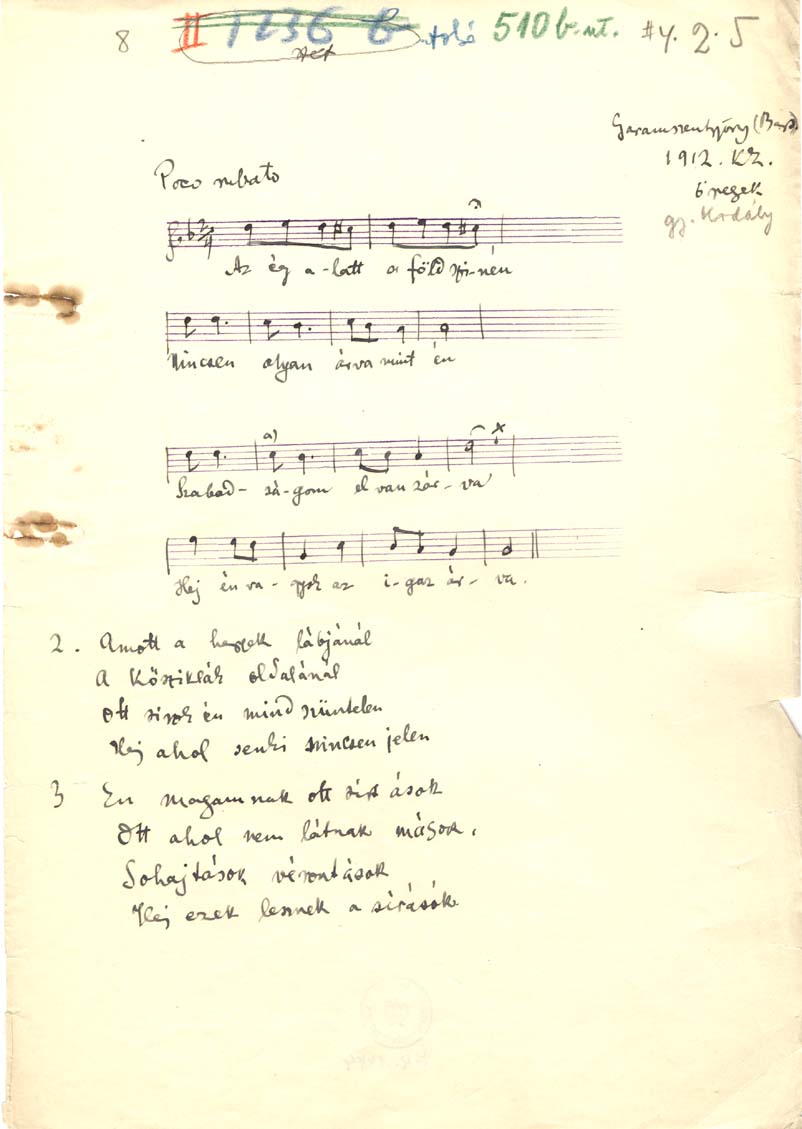 8 II 1236 b 510 b. #4. 2. 5
Garamszentgyörgy (Bars)
1912. KZ.
öregek
gy. Kodály
Poco rubato
Az ég a-latt a föld szi-nén
Nincsen olyan árva mint én
a)
Szabad- sá-gom el van zár-va
Hej én va-gyok az i-gaz ár-va.
2. Amott a hegyek lábjánál
A Kősziklák oldalánál
Ott sirok én mind szüntelen
Hej ahol senki nincsen jelen
3 En magamnak ott sirt ások
Ott ahol nem látnak mások,
Sohajtások vérontások
Hej ezek lesznek a sirásók